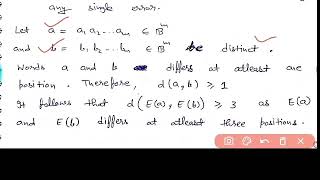 any single error.
Let a = a₁ a₂ ... aₘ ∈ 𝔹ᵐ
and b = b₁ b₂ ... bₘ ∈ 𝔹ᵐ be distinct.
Words a and b differs at atleast are
position. Therefore, d(a, b) ≥ 1
It follows that d(E(a), E(b)) ≥ 3 as E(a)
and E(b) differs at atleast three positions.